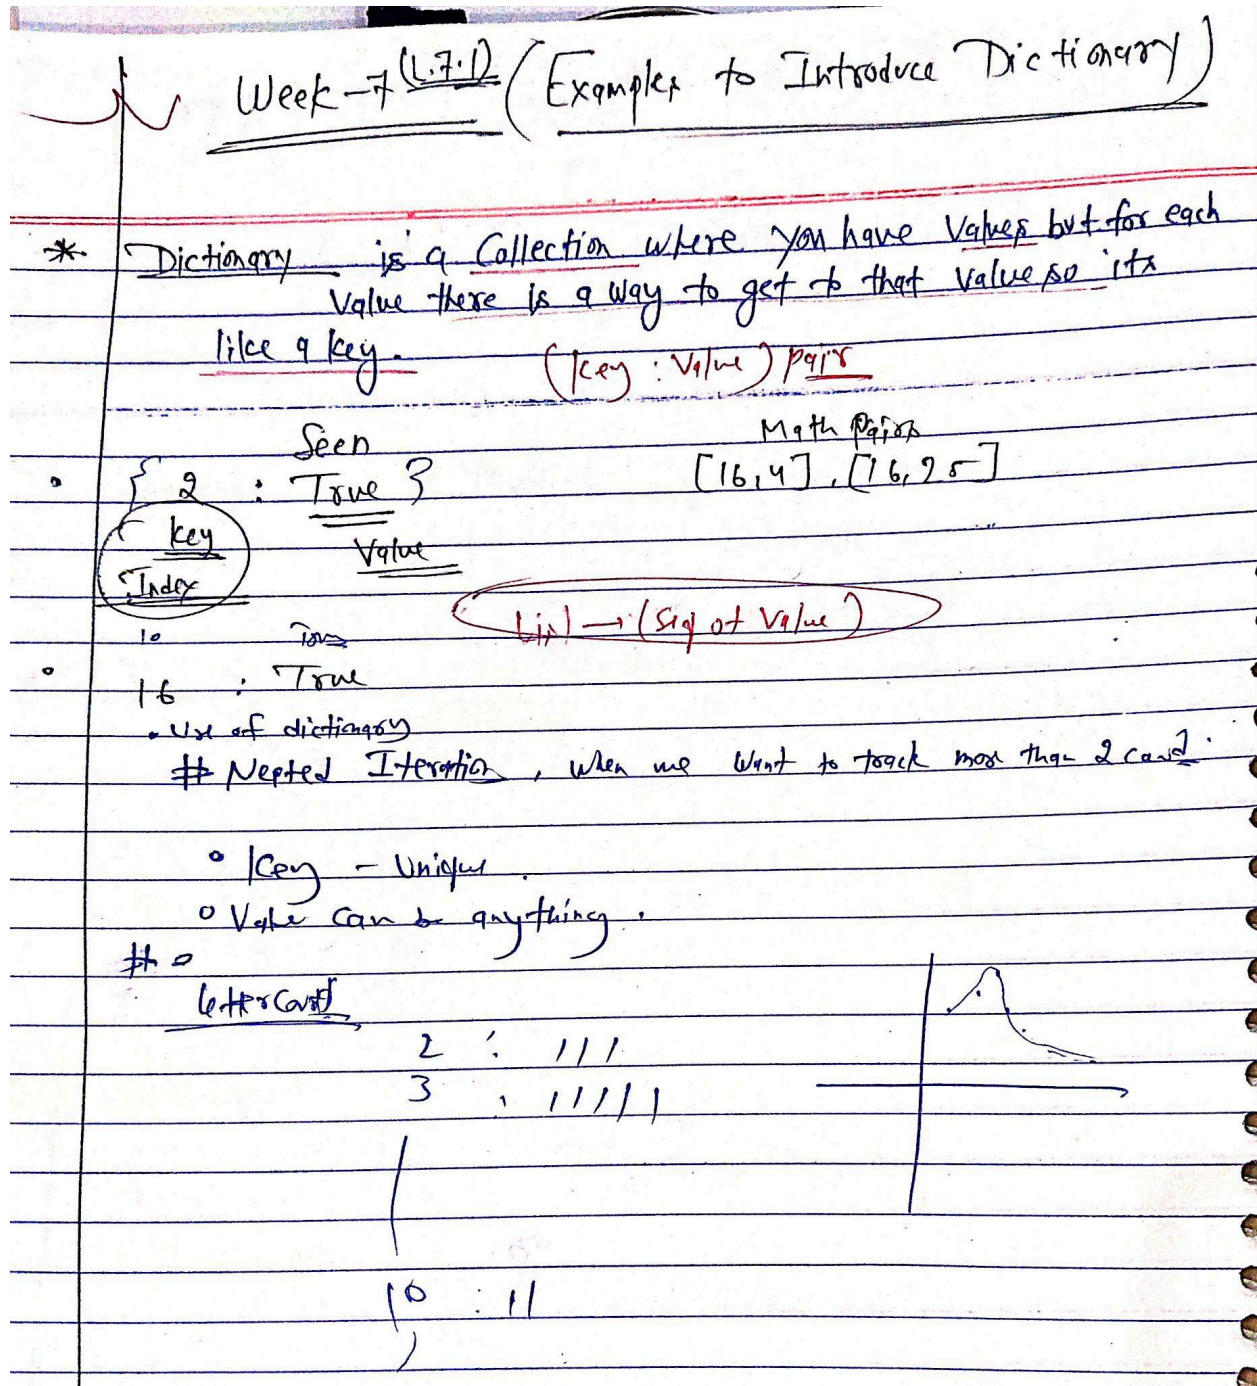 Week-7 (L.7.1) (Examples to Introduce Dictionary)
* Dictionary is a Collection where you have Values but for each
Value there is a way to get to that value so its
like a key.
(key : Value) pair
Seen
Math Pairs
{ 2 : True }
[16,4], [16,25]
Key
Value
Index
List → (Seq of Value)
10
16 : True
• Use of dictionary
# Nested Iteration, when we want to track more than 2 card
• Key - Unique.
• Value can be anything.
#
letterCount
2 : |||
3 : |||||
10 : ||